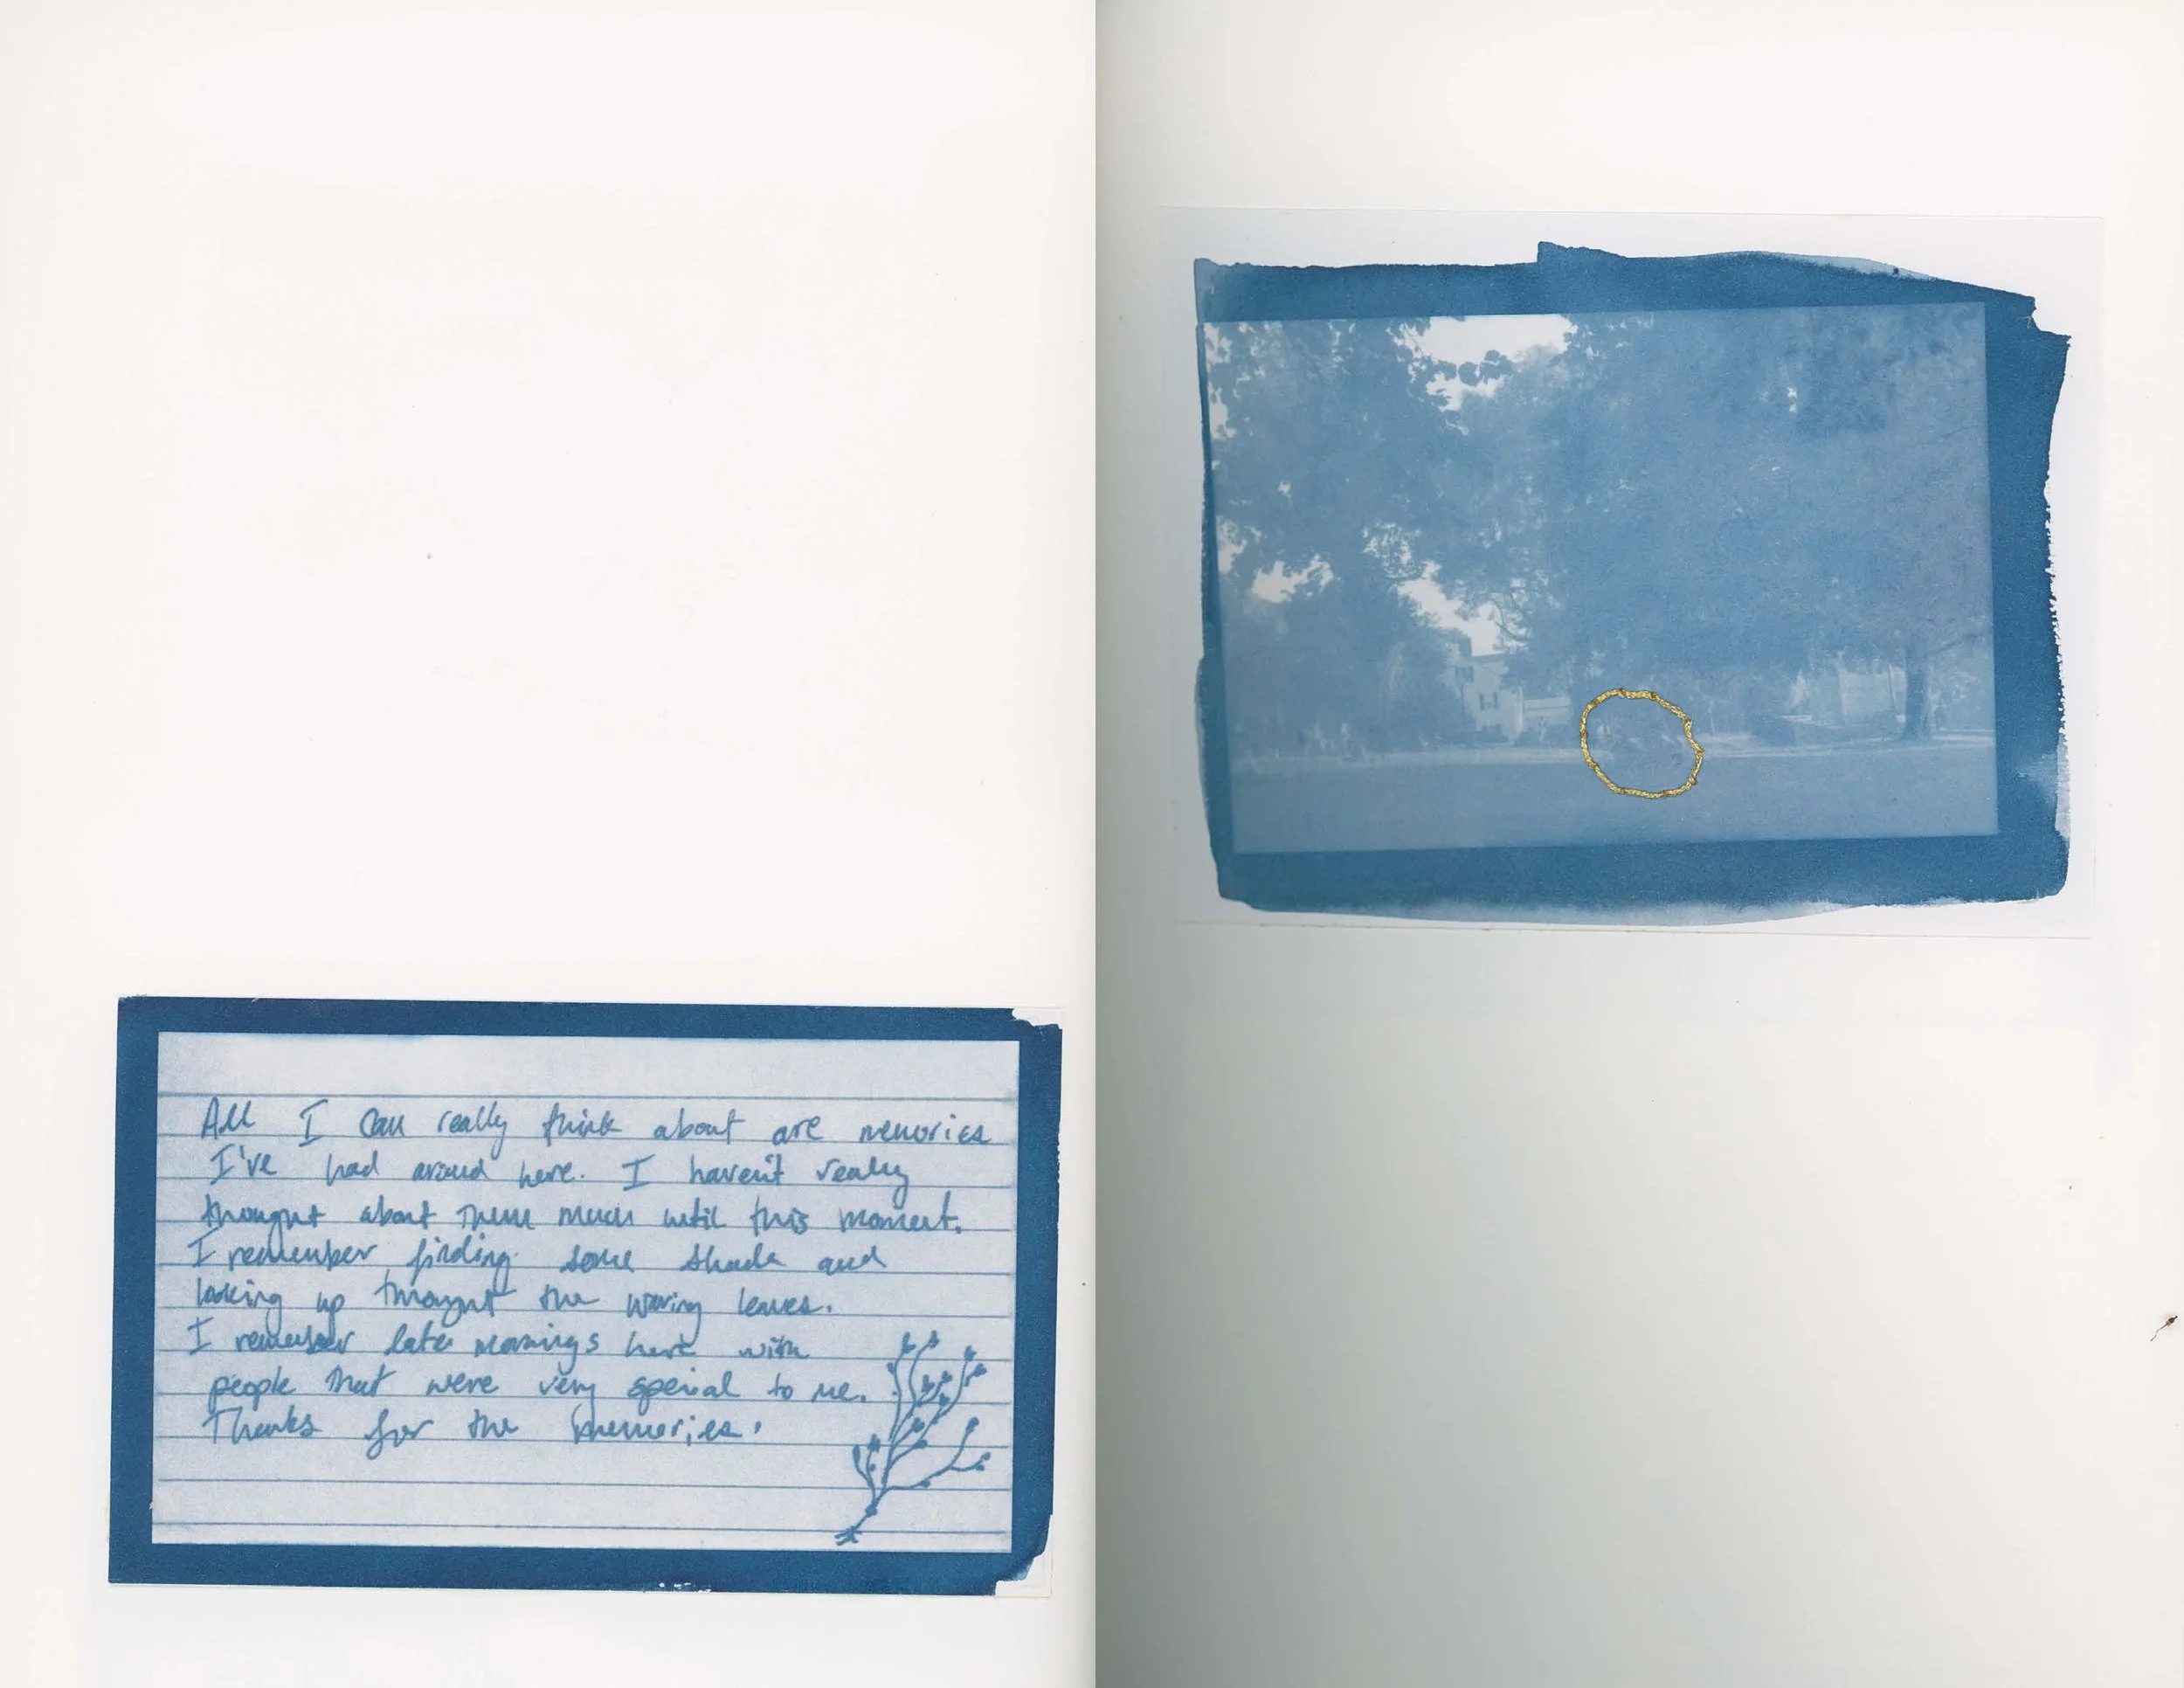 All I can really think about are memories
I've had around here. I haven't really
thought about them much until this moment.
I remember finding some shade and
looking up throught the waving leaves.
I remember late mornings here with
people that were very special to me.
Thanks for the memories.